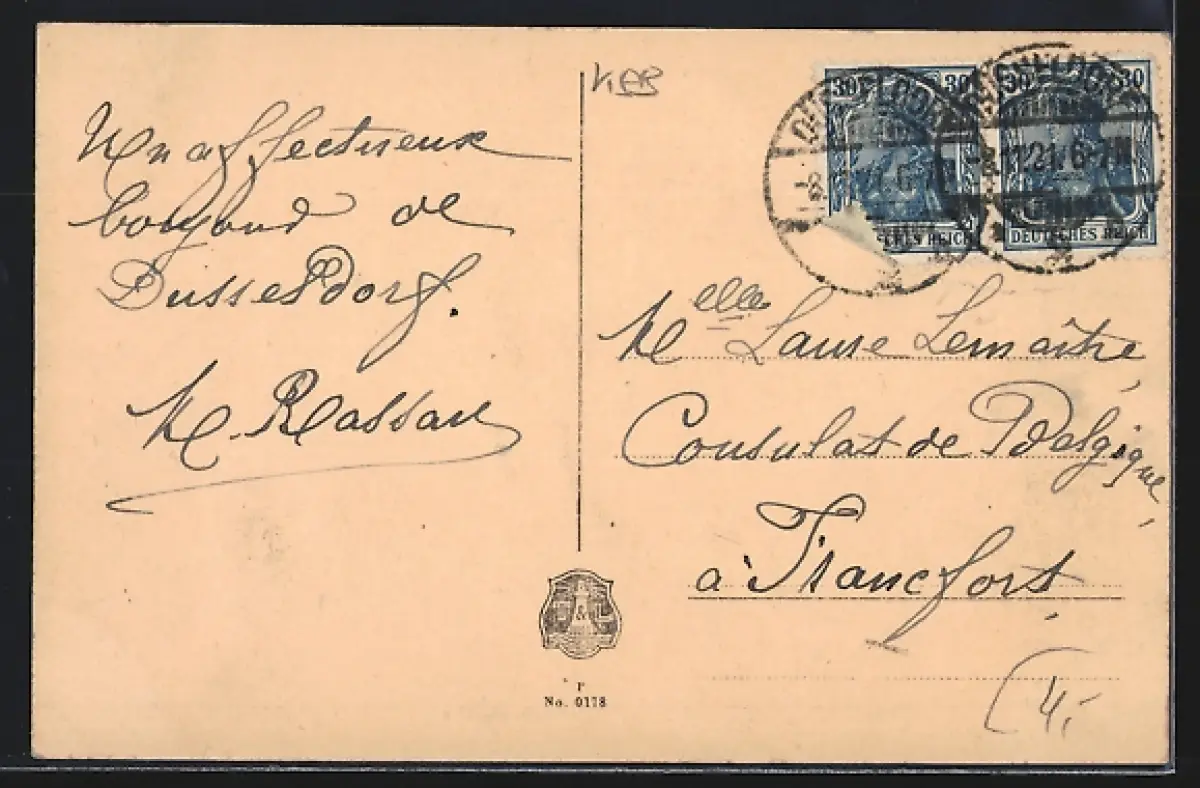 Un affectueux
bonjour de
Dusseldorf.
M. Rassau
30 30
DÜSSELDORF
-8.11.21. 6-7 N.
DEUTSCHES REICH
30 30
DÜSSELDORF
DEUTSCHES REICH
Melle Laure Lemaître,
Consulat de Belgique,
à Francfort,
&
No. 0178
(4,-